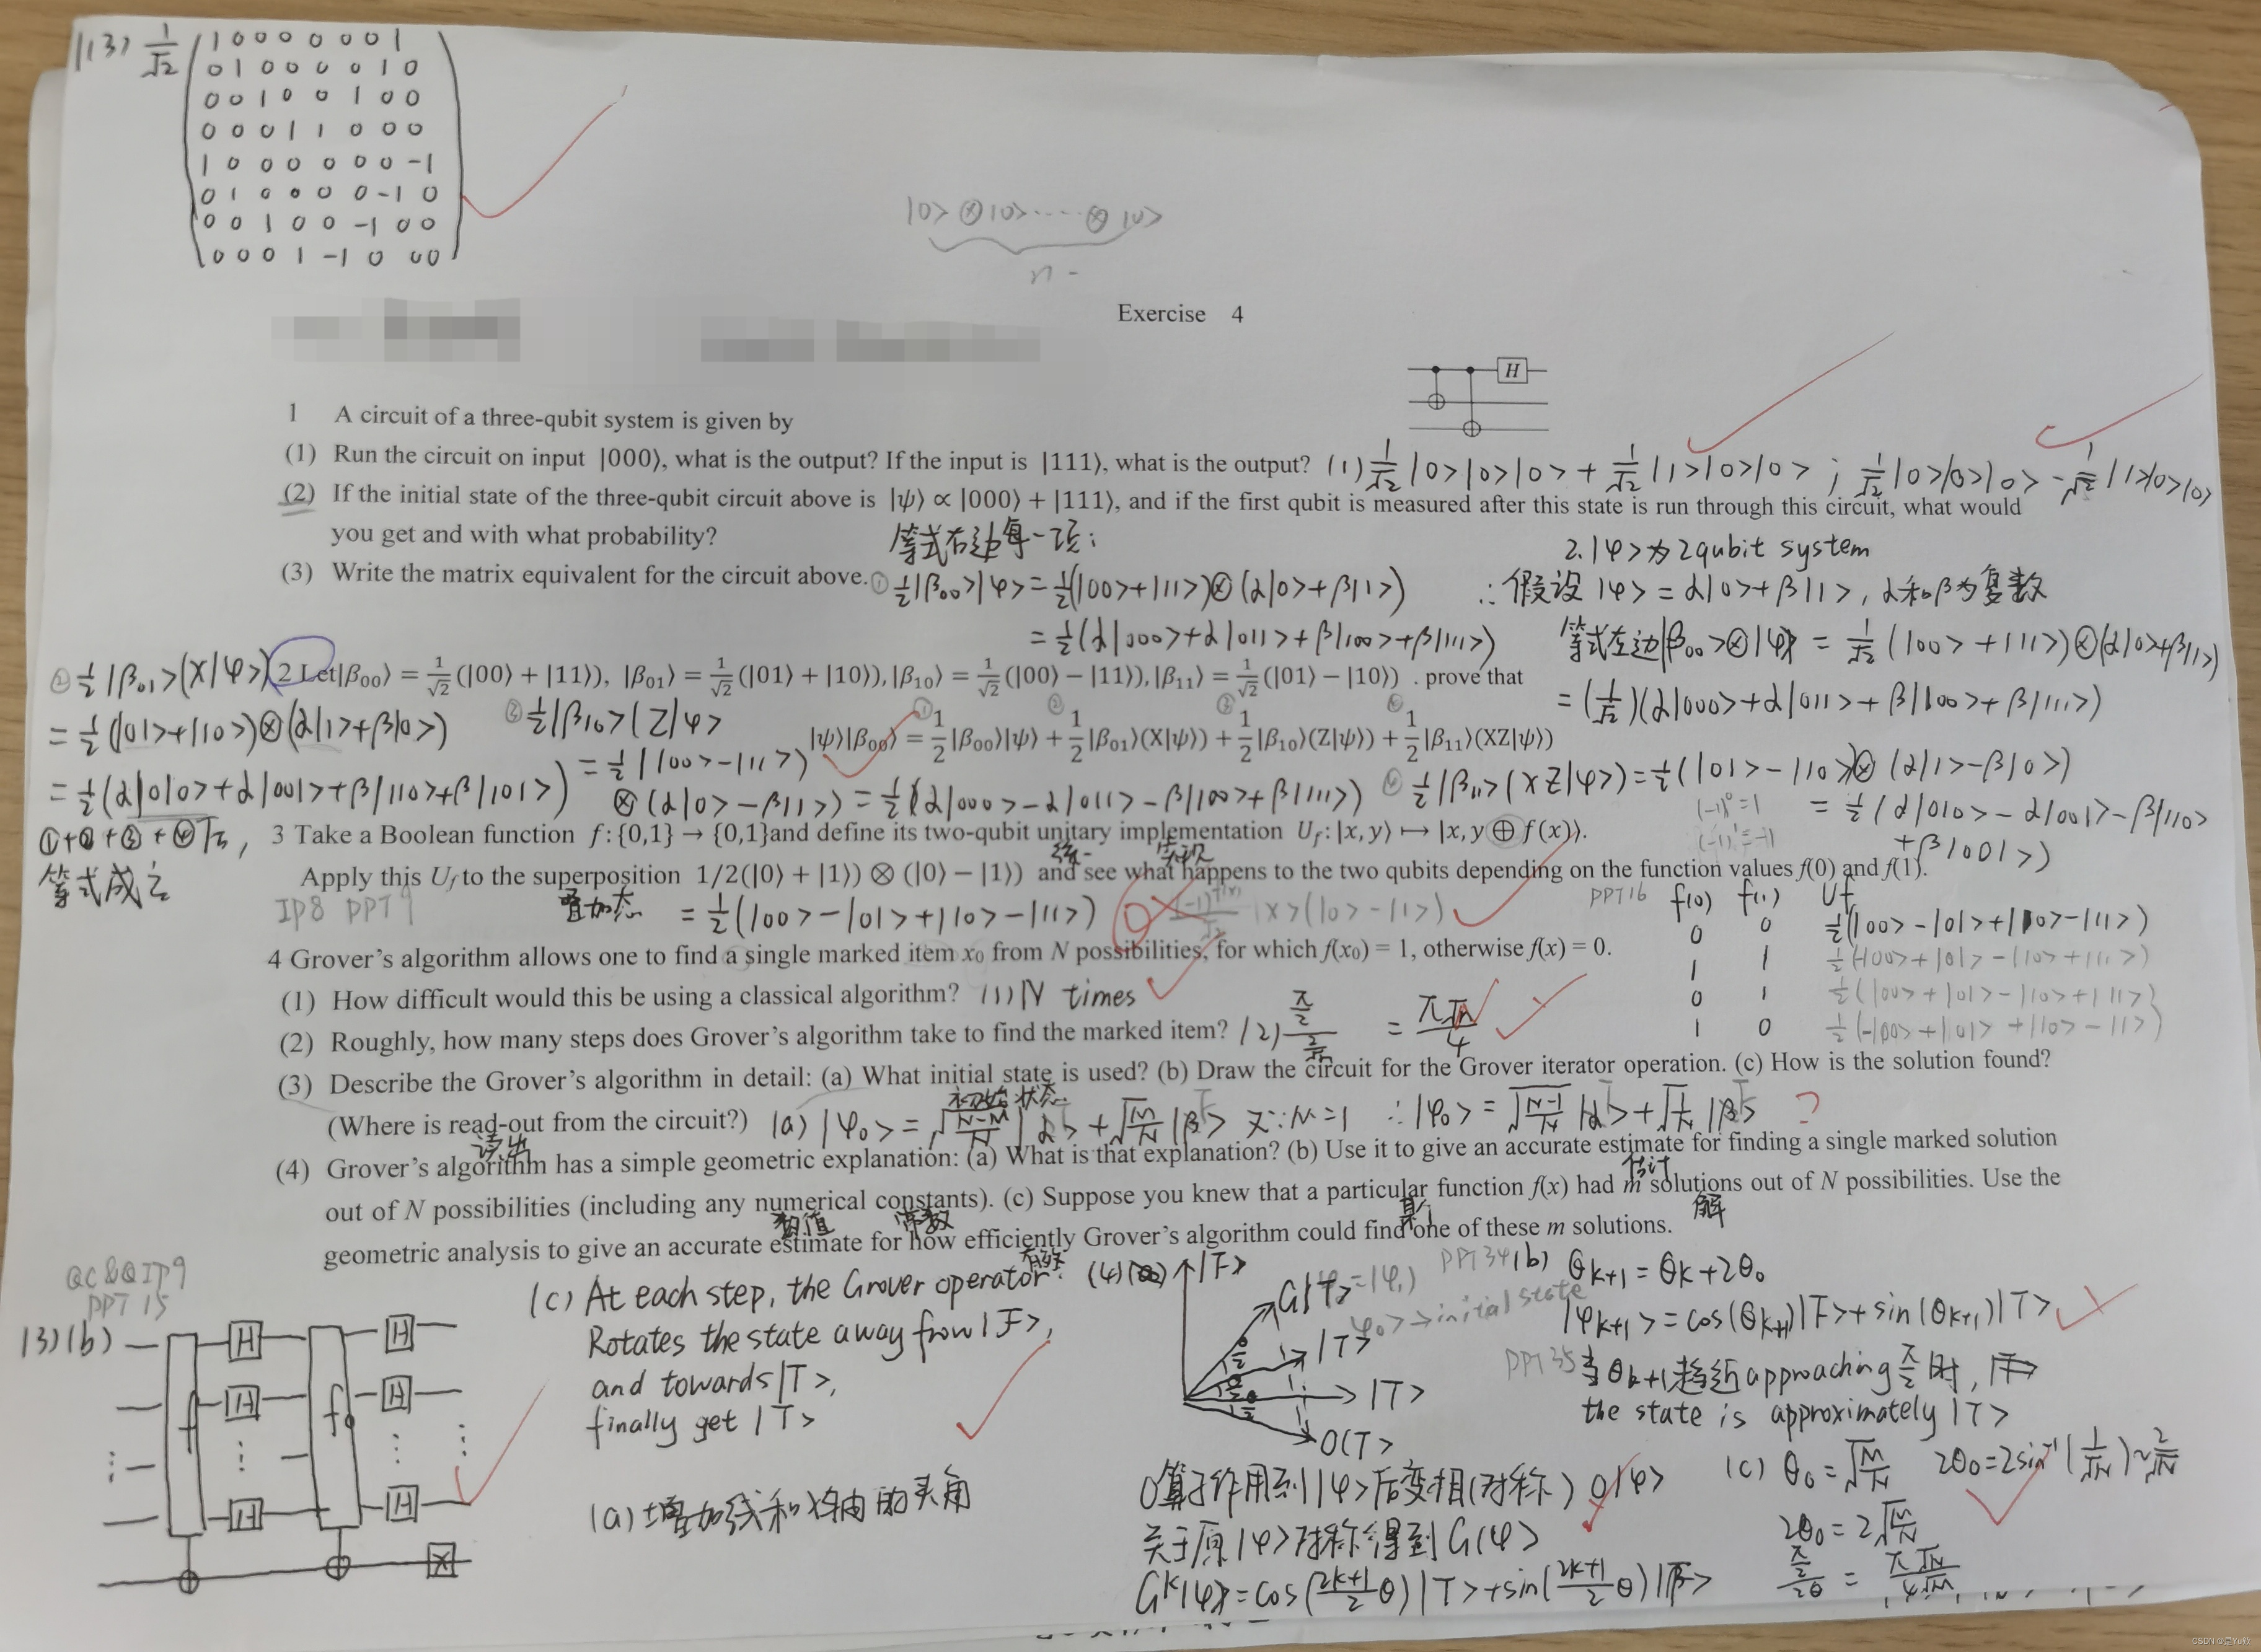 1(3) 1/√2
1 0 0 0 0 0 0 1
0 1 0 0 0 0 1 0
0 0 1 0 0 1 0 0
0 0 0 1 1 0 0 0
1 0 0 0 0 0 0 -1
0 1 0 0 0 0 -1 0
0 0 1 0 0 -1 0 0
0 0 0 1 -1 0 0 0
|0> ⊗ |0> ···· ⊗ |0>
n
Exercise 4
H
1 A circuit of a three-qubit system is given by
(1) Run the circuit on input |000⟩, what is the output? If the input is |111⟩, what is the output? (1) 1/√2 |0>|0>|0> + 1/√2 |1>|0>|0> ; 1/√2 |0>|0>|0> - 1/√2 |1>|0>|0>
(2) If the initial state of the three-qubit circuit above is |ψ⟩ ∝ |000⟩ + |111⟩, and if the first qubit is measured after this state is run through this circuit, what would
you get and with what probability?
等式右边每一项:
2. |φ>为2qubit system
(3) Write the matrix equivalent for the circuit above.
① 1/2|β00>|φ> = 1/2(|00>+|11>)⊗(α|0>+β|1>)
∴假设 |φ> = α|0>+β|1>, α和β为复数
= 1/2(α|000>+α|011>+β|100>+β|111>)
等式左边|β00>⊗|φ> = 1/√2 (|00>+|11>)⊗(α|0>+β|1>)
② 1/2 |β01>(X|φ>)
2 Let|β00⟩ = 1/√2(|00⟩ + |11⟩), |β01⟩ = 1/√2(|01⟩ + |10⟩), |β10⟩ = 1/√2(|00⟩ − |11⟩), |β11⟩ = 1/√2(|01⟩ − |10⟩) . prove that
= (1/√2)(α|000>+α|011>+β|100>+β|111>)
= 1/2 (|01>+|10>)⊗(α|1>+β|0>)
③ 1/2|β10>(Z|φ>
① ② ③ ④
|ψ⟩|β00⟩ = 1/2|β00⟩|ψ⟩ + 1/2|β01⟩(X|ψ⟩) + 1/2|β10⟩(Z|ψ⟩) + 1/2|β11⟩(XZ|ψ⟩)
= 1/2(α|010>+α|001>+β|110>+β|101>)
= 1/2(|00>-|11>)
⊗(α|0>-β|1>) = 1/2(α|000>-α|011>-β|100>+β|111>)
④ 1/2|β11>(XZ|φ>) = 1/2(|01>-|10>)⊗(α|1>-β|0>)
(-1)^0=1
= 1/2(α|010>-α|001>-β|110>
(-1)^1=-1
+β|001>)
①+②+③+④后,
等式成立
3 Take a Boolean function f: {0,1} → {0,1}and define its two-qubit unitary implementation Uf: |x, y⟩ ↦ |x, y ⊕ f(x)⟩.
实现
Apply this Uf to the superposition 1/2(|0⟩ + |1⟩) ⊗ (|0⟩ − |1⟩) and see what happens to the two qubits depending on the function values f(0) and f(1).
IP8 PPT9
叠加态
= 1/2(|00>-|01>+|10>-|11>)
(-1)^f(x)/√2 |x>(|0>-|1>)
PPT16
f(0) f(1) Uf
0 0 1/2(|00>-|01>+|10>-|11>)
1 1 1/2(-|00>+|01>-|10>+|11>)
0 1 1/2(|00>+|01>-|10>+|11>)
1 0 1/2(-|00>+|01>+|10>-|11>)
4 Grover's algorithm allows one to find a single marked item x0 from N possibilities, for which f(x0) = 1, otherwise f(x) = 0.
(1) How difficult would this be using a classical algorithm? (1) N times
(2) Roughly, how many steps does Grover's algorithm take to find the marked item? (2) π/2 / 2/√N = π√N/4
(3) Describe the Grover's algorithm in detail: (a) What initial state is used? (b) Draw the circuit for the Grover iterator operation. (c) How is the solution found?
初始状态
(Where is read-out from the circuit?) (a) |φ0> = √(N-M/N) |α> + √(M/N) |β> 又∵M=1 ∴|φ0> = √(N-1/N) |α> + √(1/N) |β> ?
读出
(4) Grover's algorithm has a simple geometric explanation: (a) What is that explanation? (b) Use it to give an accurate estimate for finding a single marked solution
估计
out of N possibilities (including any numerical constants). (c) Suppose you knew that a particular function f(x) had m solutions out of N possibilities. Use the
数值 常数 某个 解
geometric analysis to give an accurate estimate for how efficiently Grover's algorithm could find one of these m solutions.
QC&QIP9
PPT 15
(3)(b)
H H
H H
H H
X
f f
(c) At each step, the Grover operator
Rotates the state away from |F>,
and towards |T>,
finally get |T>
(a) 增加线和X轴的夹角
(4)(a) |F>
G|T>=|φ1>
φ0>→initial state
|T>
|T>
O(T>
O算子作用到|φ>后变相(对称) O|φ>
关于原|φ>对称得到G|φ>
G^k|φ> = cos(2k+1/2 θ)|T>+sin(2k+1/2 θ)|β>
PPT34
(b) θk+1 = θk+2θ0
|φk+1> = cos(θk+1)|F>+sin(θk+1)|T>
PPT35
当θk+1趋近approaching π/2时,
the state is approximately |T>
(c) θ0 = √(M/N) 2θ0=2sin^-1(1/√N)≈2/√N
2θ0 = 2√(M/N)
π/2 / 2θ = π√N/4√M
CSDN @是Yu欸